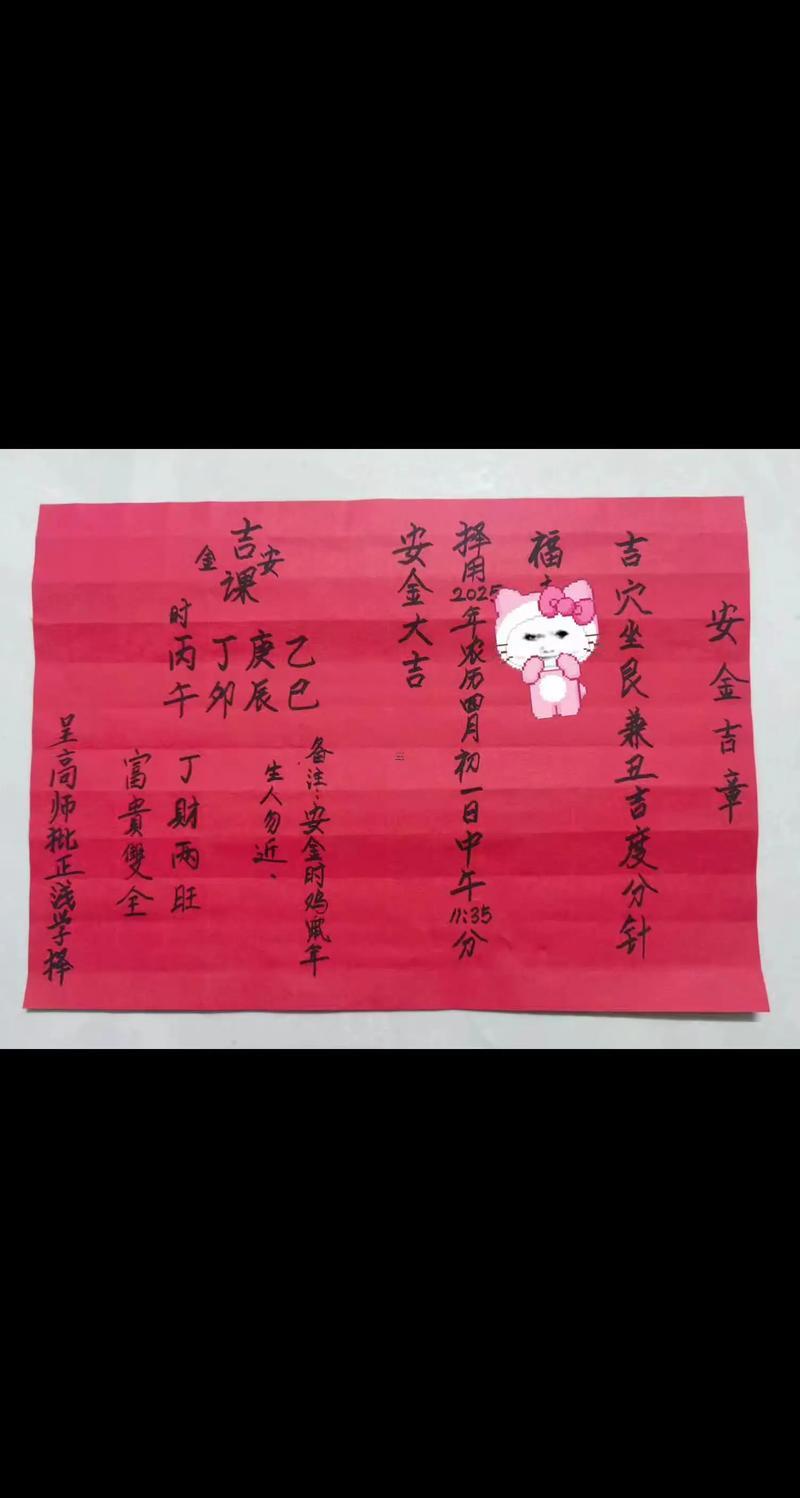 安金吉章
吉穴坐艮兼丑吉度分针
福
择用2025年农历四月初一日中午11:35分
安金大吉
备注:安金时鸡鼠年
生人勿近.
安金
吉课
乙巳
庚辰
丁卯
时丙午
丁财两旺
富貴雙全
呈高师批正浅学择